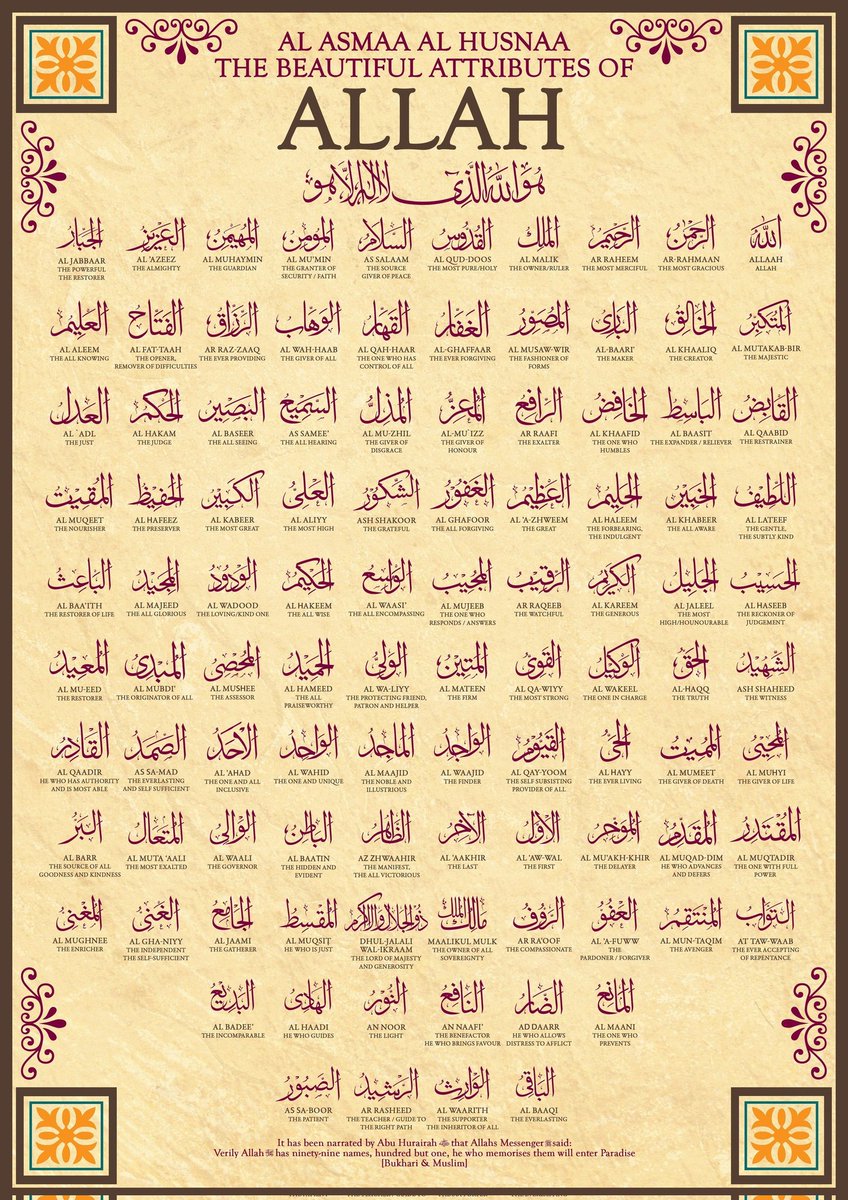 AL ASMAA AL HUSNAA
THE BEAUTIFUL ATTRIBUTES OF
ALLAH
هُوَ اللهُ الَّذِي لَا إِلٰهَ إِلَّا هُوَ
الله
ALLAAH
ALLAH
الرحمن
AR-RAHMAAN
THE MOST GRACIOUS
الرحيم
AR RAHEEM
THE MOST MERCIFUL
الملك
AL MALIK
THE OWNER/RULER
القدوس
AL QUD-DOOS
THE MOST PURE/HOLY
السلام
AS SALAAM
THE SOURCE
GIVER OF PEACE
المؤمن
AL MU'MIN
THE GRANTER OF
SECURITY / FAITH
المهيمن
AL MUHAYMIN
THE GUARDIAN
العزيز
AL 'AZEEZ
THE ALMIGHTY
الجبار
AL JABBAAR
THE POWERFUL
THE RESTORER
المتكبر
AL MUTAKAB-BIR
THE MAJESTIC
الخالق
AL KHAALIQ
THE CREATOR
البارئ
AL-BAARI'
THE MAKER
المصور
AL MUSAW-WIR
THE FASHIONER OF
FORMS
الغفار
AL-GHAFFAAR
THE EVER FORGIVING
القهار
AL QAH-HAAR
THE ONE WHO HAS
CONTROL OF ALL
الوهاب
AL WAH-HAAB
THE GIVER OF ALL
الرزاق
AR RAZ-ZAAQ
THE EVER PROVIDING
الفتاح
AL FAT-TAAH
THE OPENER,
REMOVER OF DIFFICULTIES
العليم
AL ALEEM
THE ALL KNOWING
القابض
AL QAABID
THE RESTRAINER
الباسط
AL BAASIT
THE EXPANDER / RELIEVER
الخافض
AL KHAAFID
THE ONE WHO
HUMBLES
الرافع
AR RAAFI
THE EXALTER
المعز
AL-MU'IZZ
THE GIVER OF
HONOUR
المذل
AL MU-ZHIL
THE GIVER OF
DISGRACE
السميع
AS SAMEE'
THE ALL HEARING
البصير
AL BASEER
THE ALL SEEING
الحكم
AL HAKAM
THE JUDGE
العدل
AL `ADL
THE JUST
اللطيف
AL LATEEF
THE GENTLE,
THE SUBTLY KIND
الخبير
AL KHABEER
THE ALL AWARE
الحليم
AL HALEEM
THE FORBEARING,
THE INDULGENT
العظيم
AL 'A-ZHWEEM
THE GREAT
الغفور
AL GHAFOOR
THE ALL FORGIVING
الشكور
ASH SHAKOOR
THE GRATEFUL
العلي
AL ALIYY
THE MOST HIGH
الكبير
AL KABEER
THE MOST GREAT
الحفيظ
AL HAFEEZ
THE PRESERVER
المقيت
AL MUQEET
THE NOURISHER
الحسيب
AL HASEEB
THE RECKONER OF
JUDGEMENT
الجليل
AL JALEEL
THE MOST
HIGH/HOUNOURABLE
الكريم
AL KAREEM
THE GENEROUS
الرقيب
AR RAQEEB
THE WATCHFUL
المجيب
AL MUJEEB
THE ONE WHO
RESPONDS / ANSWERS
الواسع
AL WAASI'
THE ALL ENCOMPASSING
الحكيم
AL HAKEEM
THE ALL WISE
الودود
AL WADOOD
THE LOVING/KIND ONE
المجيد
AL MAJEED
THE ALL GLORIOUS
الباعث
AL BAA'ITH
THE RESTORER OF LIFE
الشهيد
ASH SHAHEED
THE WITNESS
الحق
AL-HAQQ
THE TRUTH
الوكيل
AL WAKEEL
THE ONE IN CHARGE
القوي
AL QA-WIYY
THE MOST STRONG
المتين
AL MATEEN
THE FIRM
الولي
AL WA-LIYY
THE PROTECTING FRIEND,
PATRON AND HELPER
الحميد
AL HAMEED
THE ALL
PRAISEWORTHY
المحصي
AL MUSHEE
THE ASSESSOR
المبدئ
AL MUBDI'
THE ORIGINATOR OF ALL
المعيد
AL MU-EED
THE RESTORER
المحيي
AL MUHYI
THE GIVER OF LIFE
المميت
AL MUMEET
THE GIVER OF DEATH
الحي
AL HAYY
THE EVER LIVING
القيوم
AL QAY-YOOM
THE SELF SUBSISTING
PROVIDER OF ALL
الواجد
AL WAAJID
THE FINDER
الماجد
AL MAAJID
THE NOBLE AND
ILLUSTRIOUS
الواحد
AL WAHID
THE ONE AND UNIQUE
الأحد
AL 'AHAD
THE ONE AND ALL
INCLUSIVE
الصمد
AS SA-MAD
THE EVERLASTING
AND SELF SUFFICIENT
القادر
AL QAADIR
HE WHO HAS AUTHORITY
AND IS MOST ABLE
المقتدر
AL MUQTADIR
THE ONE WITH FULL
POWER
المقدم
AL MUQAD-DIM
HE WHO ADVANCES
AND DEFERS
المؤخر
AL MU'AKH-KHIR
THE DELAYER
الأول
AL 'AW-WAL
THE FIRST
الآخر
AL 'AAKHIR
THE LAST
الظاهر
AZ ZHWAAHIR
THE MANIFEST,
THE ALL VICTORIOUS
الباطن
AL BAATIN
THE HIDDEN AND
EVIDENT
الوالي
AL WAALI
THE GOVERNOR
المتعال
AL MUTA 'AALI
THE MOST EXALTED
البر
AL BARR
THE SOURCE OF ALL
GOODNESS AND KINDNESS
التواب
AT TAW-WAAB
THE EVER ACCEPTING
OF REPENTANCE
المنتقم
AL MUN-TAQIM
THE AVENGER
العفو
AL 'A-FUWW
THE
PARDONER / FORGIVER
الرؤوف
AR RA'OOF
THE COMPASSIONATE
مالك الملك
MAALIKUL MULK
THE OWNER OF ALL
SOVEREIGNTY
ذو الجلال والإكرام
DHUL-JALALI
WAL-IKRAAM
THE LORD OF MAJESTY
AND GENEROSITY
المقسط
AL MUQSIT
HE WHO IS JUST
الجامع
AL JAAMI
THE GATHERER
الغني
AL GHA-NIYY
THE INDEPENDENT
THE SELF-SUFFICIENT
المغني
AL MUGHNEE
THE ENRICHER
المانع
AL MAANI
THE ONE WHO
PREVENTS
الضار
AD DAARR
HE WHO ALLOWS
DISTRESS TO AFFLICT
النافع
AN NAAFI'
THE BENEFACTOR
HE WHO BRINGS FAVOUR
النور
AN NOOR
THE LIGHT
الهادي
AL HAADI
HE WHO GUIDES
البديع
AL BADEE'
THE INCOMPARABLE
الباقي
AL BAAQI
THE EVERLASTING
الوارث
AL WAARITH
THE SUPPORTER
THE INHERITOR OF ALL
الرشيد
AR RASHEED
THE TEACHER / GUIDE TO
THE RIGHT PATH
الصبور
AS SA-BOOR
THE PATIENT
It has been narrated by Abu Hurairah that Allahs Messenger ﷺ said:
Verily Allah has ninety-nine names, hundred but one, he who memorises them will enter Paradise
[Bukhari & Muslim]